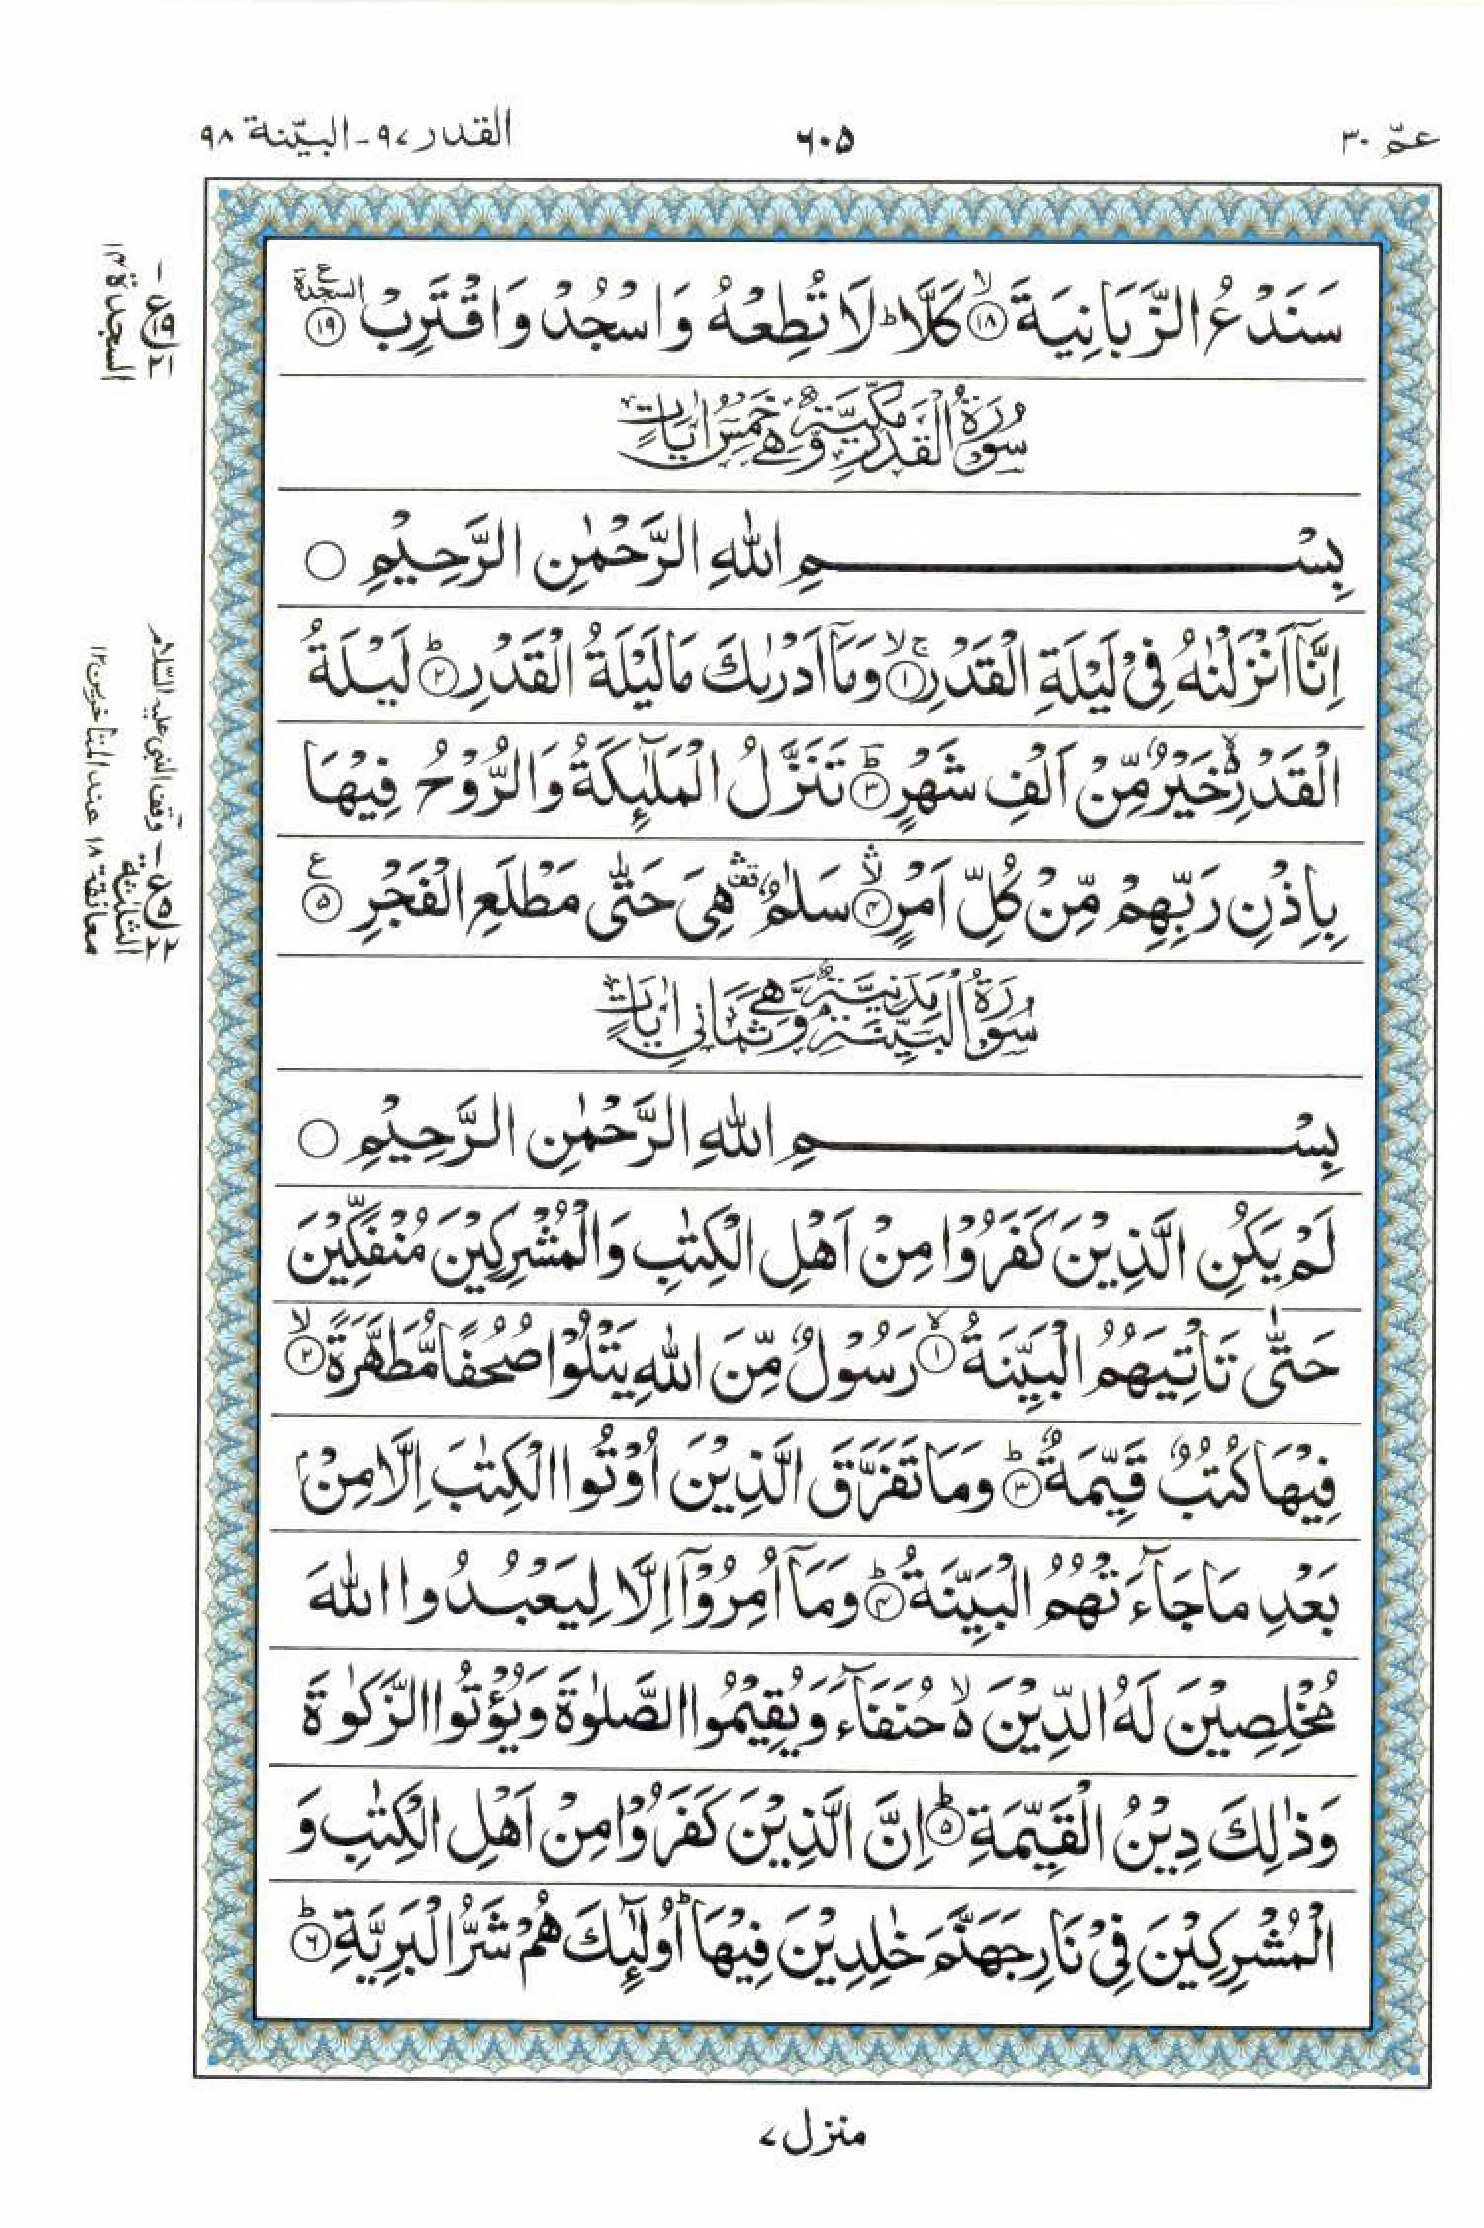 عمّ ۳۰
۶۰۵
القدر ۹۷ - البيّنة ۹۸
سَنَدْعُ الزَّبَانِيَةَ ۙ﴿۱۸﴾ كَلَّا ؕ لَا تُطِعْهُ وَاسْجُدْ وَاقْتَرِبْ ﴿۱۹﴾ السجدة ع
سُوْرَةُ الْقَدْرِ مَكِّيَّةٌ وَّهِيَ خَمْسُ اٰيَاتٍ
بِسْمِ اللّٰهِ الرَّحْمٰنِ الرَّحِيْمِ ○
اِنَّاۤ اَنْزَلْنٰهُ فِىْ لَيْلَةِ الْقَدْرِ ۚۙ﴿۱﴾ وَمَاۤ اَدْرٰىكَ مَا لَيْلَةُ الْقَدْرِ ؕ﴿۲﴾ لَيْلَةُ
الْقَدْرِ ۙ۬ خَيْرٌ مِّنْ اَلْفِ شَهْرٍ ؕ﴿۳﴾ تَنَزَّلُ الْمَلٰٓئِكَةُ وَالرُّوْحُ فِيْهَا
بِاِذْنِ رَبِّهِمْ مِّنْ كُلِّ اَمْرٍ ۛۙ﴿۴﴾ سَلٰمٌ ۛ هِىَ حَتّٰى مَطْلَعِ الْفَجْرِ ﴿۵﴾ ع
سُوْرَةُ الْبَيِّنَةِ مَدَنِيَّةٌ وَّهِيَ ثَمَانِي اٰيَاتٍ
بِسْمِ اللّٰهِ الرَّحْمٰنِ الرَّحِيْمِ ○
لَمْ يَكُنِ الَّذِيْنَ كَفَرُوْا مِنْ اَهْلِ الْكِتٰبِ وَالْمُشْرِكِيْنَ مُنْفَكِّيْنَ
حَتّٰى تَاْتِيَهُمُ الْبَيِّنَةُ ۙ﴿۱﴾ رَسُوْلٌ مِّنَ اللّٰهِ يَتْلُوْا صُحُفًا مُّطَهَّرَةً ۙ﴿۲﴾
فِيْهَا كُتُبٌ قَيِّمَةٌ ؕ﴿۳﴾ وَمَا تَفَرَّقَ الَّذِيْنَ اُوْتُوا الْكِتٰبَ اِلَّا مِنْۢ
بَعْدِ مَا جَآءَتْهُمُ الْبَيِّنَةُ ؕ﴿۴﴾ وَمَاۤ اُمِرُوْۤا اِلَّا لِيَعْبُدُوا اللّٰهَ
مُخْلِصِيْنَ لَهُ الدِّيْنَ ۙ۬ حُنَفَآءَ وَيُقِيْمُوا الصَّلٰوةَ وَيُؤْتُوا الزَّكٰوةَ
وَذٰلِكَ دِيْنُ الْقَيِّمَةِ ؕ﴿۵﴾ اِنَّ الَّذِيْنَ كَفَرُوْا مِنْ اَهْلِ الْكِتٰبِ وَ
الْمُشْرِكِيْنَ فِىْ نَارِ جَهَنَّمَ خٰلِدِيْنَ فِيْهَا ؕ اُولٰٓئِكَ هُمْ شَرُّ الْبَرِيَّةِ ؕ﴿۶﴾
السجدة ۱۴
وقف النبي عليه السّلام
معانقة ۱۸ عند المتأخرين ۱۲
منزل ۷